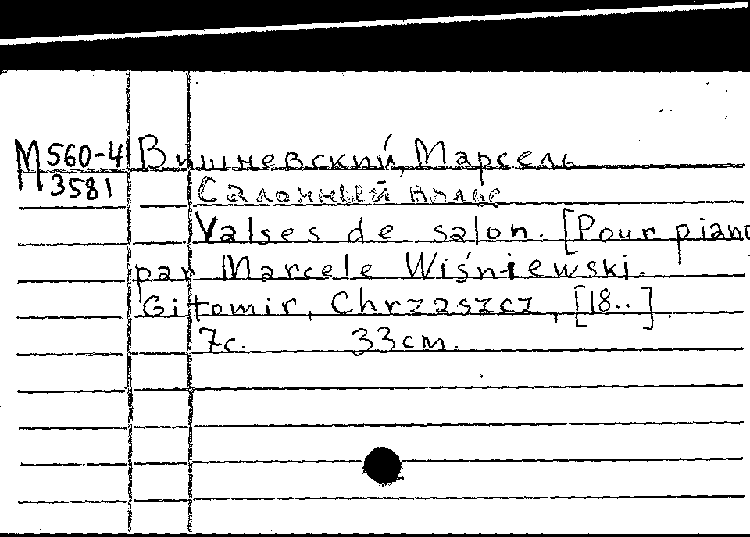 М 560-4 Вишневский, Марсель
3581 Салонный вальс
Valses de salon. [Pour piano
par Marcele Wiśniewski.
Gitomir, Chrzaszcz, [18..]
7с. 33cm.